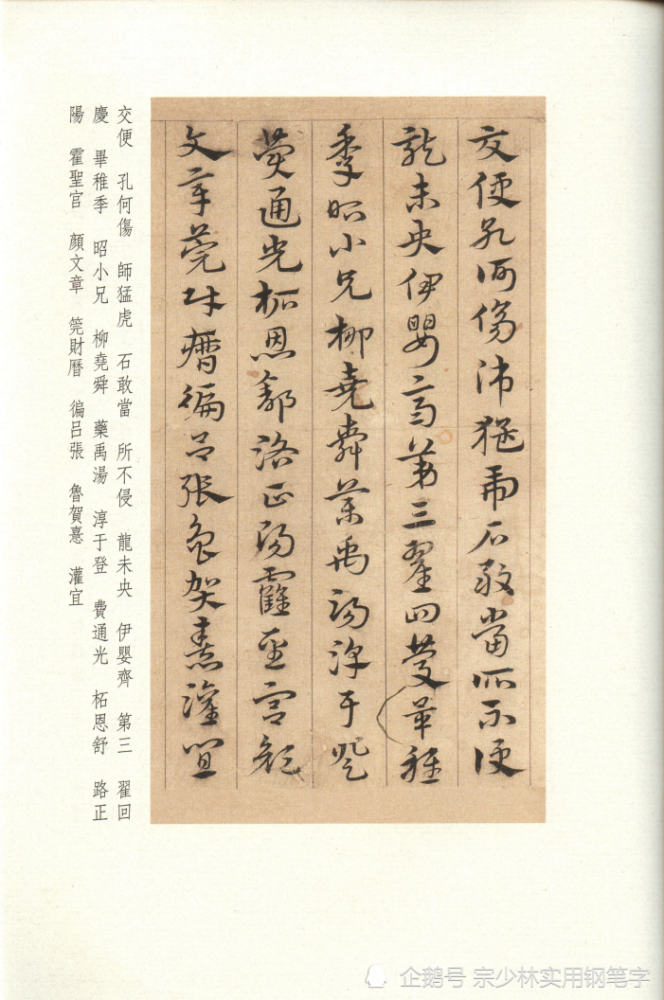 交便孔何傷師猛虎石敢當所不侵
龍未央伊嬰齊第三翟回慶畢稚
季昭小兄柳堯舜藥禹湯淳于登
費通光柘恩舒路正陽霍聖宮顏
文章莞財曆徧呂張魯賀憙灌宜
交便 孔何傷 師猛虎 石敢當 所不侵 龍未央 伊嬰齊 第三 翟回
慶 畢稚季 昭小兄 柳堯舜 藥禹湯 淳于登 費通光 柘恩舒 路正
陽 霍聖官 顏文章 筦財曆 徧呂張 魯賀憙 灌宜
企鹅号 宗少林实用钢笔字